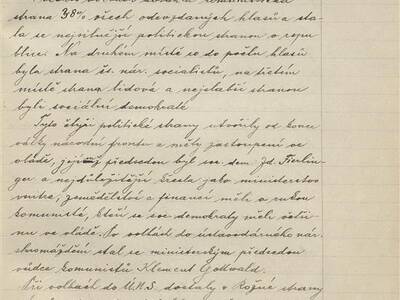 strana 38% všech odevzdaných hlasů a sta-
la se nejsilnější politickou stranou v repu
blice. Na druhém místě se do počtu hlasů
byla strana čs. nár. socialistů, na třetím
místě strana lidová a nejslabší stranou
byli sociální demokraté
Tyto čtyři politické strany utvořily od konce
války národní frontu a měly zastoupení ve
vládě, jejímž předsedou byl soc. dem Zd. Fierlin-
ger a nejdůležitější křesla jako ministerstvo
vnitra, zemědělství a financí měli v rukou
komunisté, kteří se soc demokraty měli větši-
nu ve vládě. Po volbách do ústavodárného nár.
shromáždění stal se ministerským předsedou
vůdce komunistů Klement Gottwald.
Při volbách do Ú.N.S. dostaly v Rožné strany